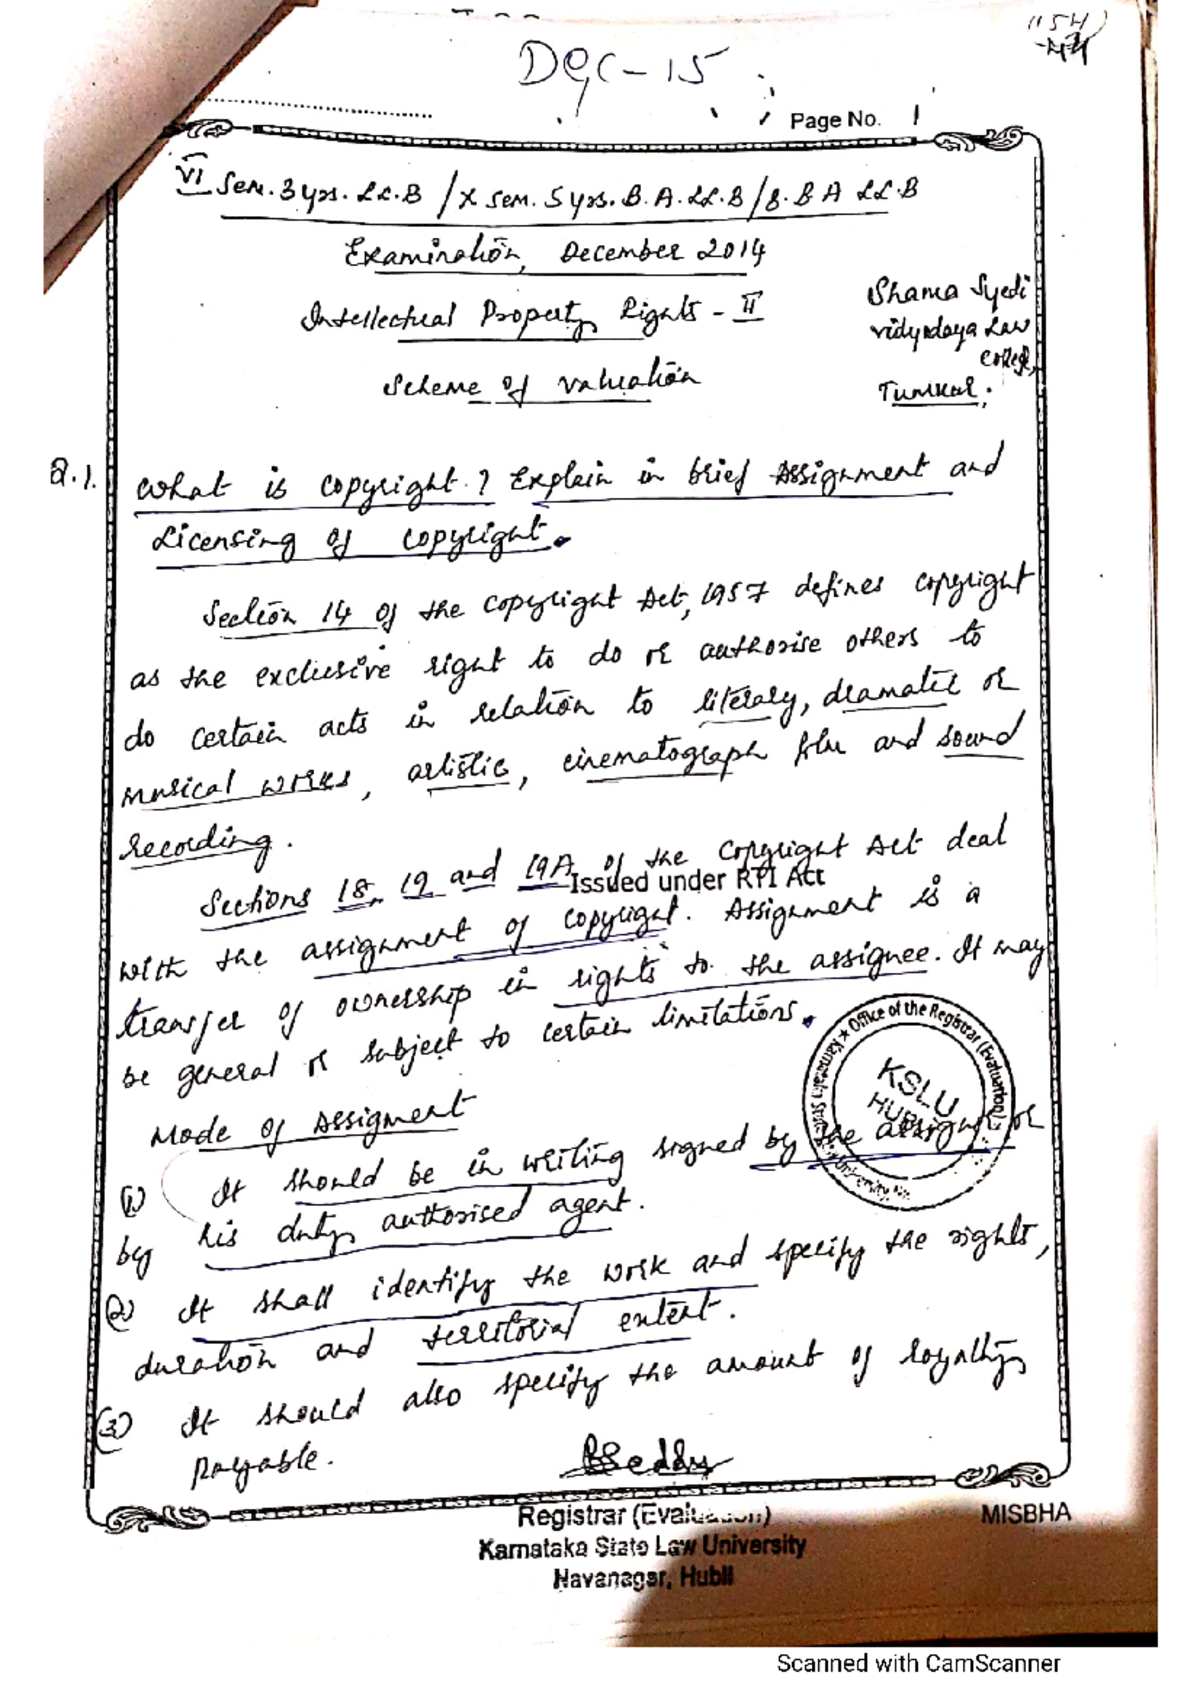 Dec-15
Page No. 1
VI Sem. 3 yrs. LL.B / X Sem. 5 yrs. B.A. LL.B / B.B A LL.B
Examination, December 2014
Intellectual Property Rights - II
Scheme of Valuation
Shama Syedi
Vidyodaya Law
College,
Tumkur.
Q.1. What is copyright? Explain in brief Assignment and
Licensing of copyright.
Section 14 of the Copyright Act, 1957 defines copyright
as the exclusive right to do or authorise others to
do certain acts in relation to literary, dramatic or
musical works, artistic, cinematograph film and sound
recording.
Sections 18, 19 and 19A of the Copyright Act deal
Issued under RTI Act
with the assignment of copyright. Assignment is a
transfer of ownership in rights to the assignee. It may
be general or subject to certain limitations.
Mode of Assigment
(1) It should be in writing signed by the assignor or
by his duly authorised agent.
(2) It shall identify the work and specify the rights,
duration and territorial extent.
(3) It should also specify the amount of royalty
payable.
Office of the Registrar (Evaluation)
KSLU
HUBLI
Registrar (Evaluation)
MISBHA
Karnataka State Law University
Navanagar, Hubli
Scanned with CamScanner